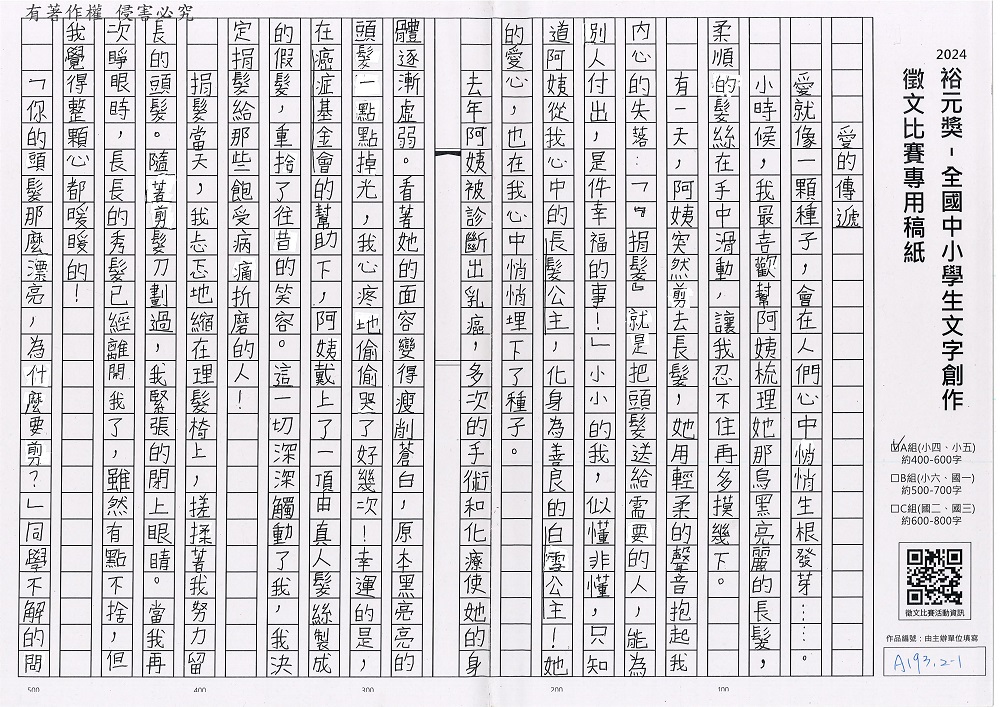 有著作權 侵害必究
2024
裕元獎-全國中小學生文字創作
徵文比賽專用稿紙
☑A組(小四、小五)
約400-600字
□B組(小六、國一)
約500-700字
□C組(國二、國三)
約600-800字
徵文比賽活動資訊
作品編號：由主辦單位填寫
A193.2-1
愛的傳遞
愛就像一顆種子，會在人們心中悄悄生根發芽……。
小時候，我最喜歡幫阿姨梳理她那烏黑亮麗的長髮，
柔順的髮絲在手中滑動，讓我忍不住再多摸幾下。
有一天，阿姨突然剪去長髮，她用輕柔的聲音抱起我
內心的失落：「『捐髮』就是把頭髮送給需要的人，能為
別人付出，是件幸福的事！」小小的我，似懂非懂，只知
道阿姨從我心中的長髮公主，化身為善良的白雪公主！她
的愛心，也在我心中悄悄埋下了種子。
去年阿姨被診斷出乳癌，多次的手術和化療使她的身
體逐漸虛弱。看著她的面容變得瘦削蒼白，原本黑亮亮的
頭髮一點點掉光，我心疼地偷偷哭了好幾次！幸運的是，
在癌症基金會的幫助下，阿姨戴上了一頂由真人髮絲製成
的假髮，重拾了往昔的笑容。這一切深深觸動了我，我決
定捐髮給那些飽受病痛折磨的人！
捐髮當天，我忐忑地縮在理髮椅上，搓揉著我努力留
長的頭髮。隨著剪髮刀劃過，我緊張的閉上眼睛。當我再
次睜眼時，長長的秀髮已經離開我了，雖然有點不捨，但
我覺得整顆心都暖暖的！
「你的頭髮那麼漂亮，為什麼要剪？」同學不解的問
100
200
300
400
500